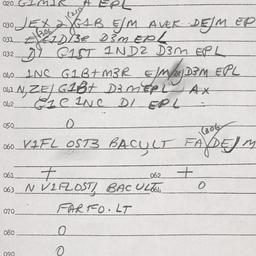 020 G1M1R A EPL
030 JEX 2 G1B E/M AVEK DE/M EP
031 E G1D13E D3M EPL
032 D1 G1ST 1ND2 D3M EPL
040 1NC G1B+M3R E/M D3M EPL
041 N, ZE/ G1B+ D3M EPL AX
042 E1C 1NC D1 EPL
050 0
060 V1FL OST3 BACULT FA DE/M
061 + 062 +
063 N V1FLOST3 BACULT 0
070 FARFO.LT
080 0
090 0